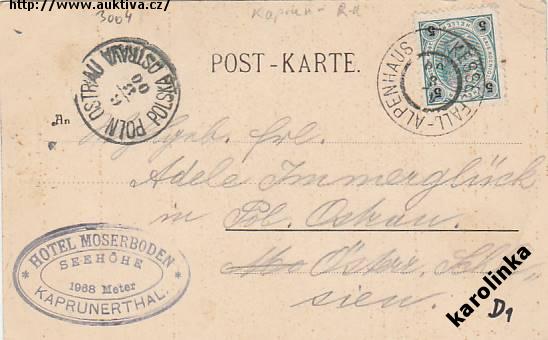 http://www.auktiva.cz
3004
Kaprun
POST-KARTE.
5 HELLER 5
KESSELFALL-ALPENHAUS
POLN. OSTRAU
POLSKÁ OSTRAVA
00
An
Frl.
Adele Immerglück
in Pol. Ostrau.
Öster. Schle-
sien.
* HOTEL MOSERBODEN *
SEEHÖHE
1968 Meter
KAPRUNERTHAL.
karolinka
D1